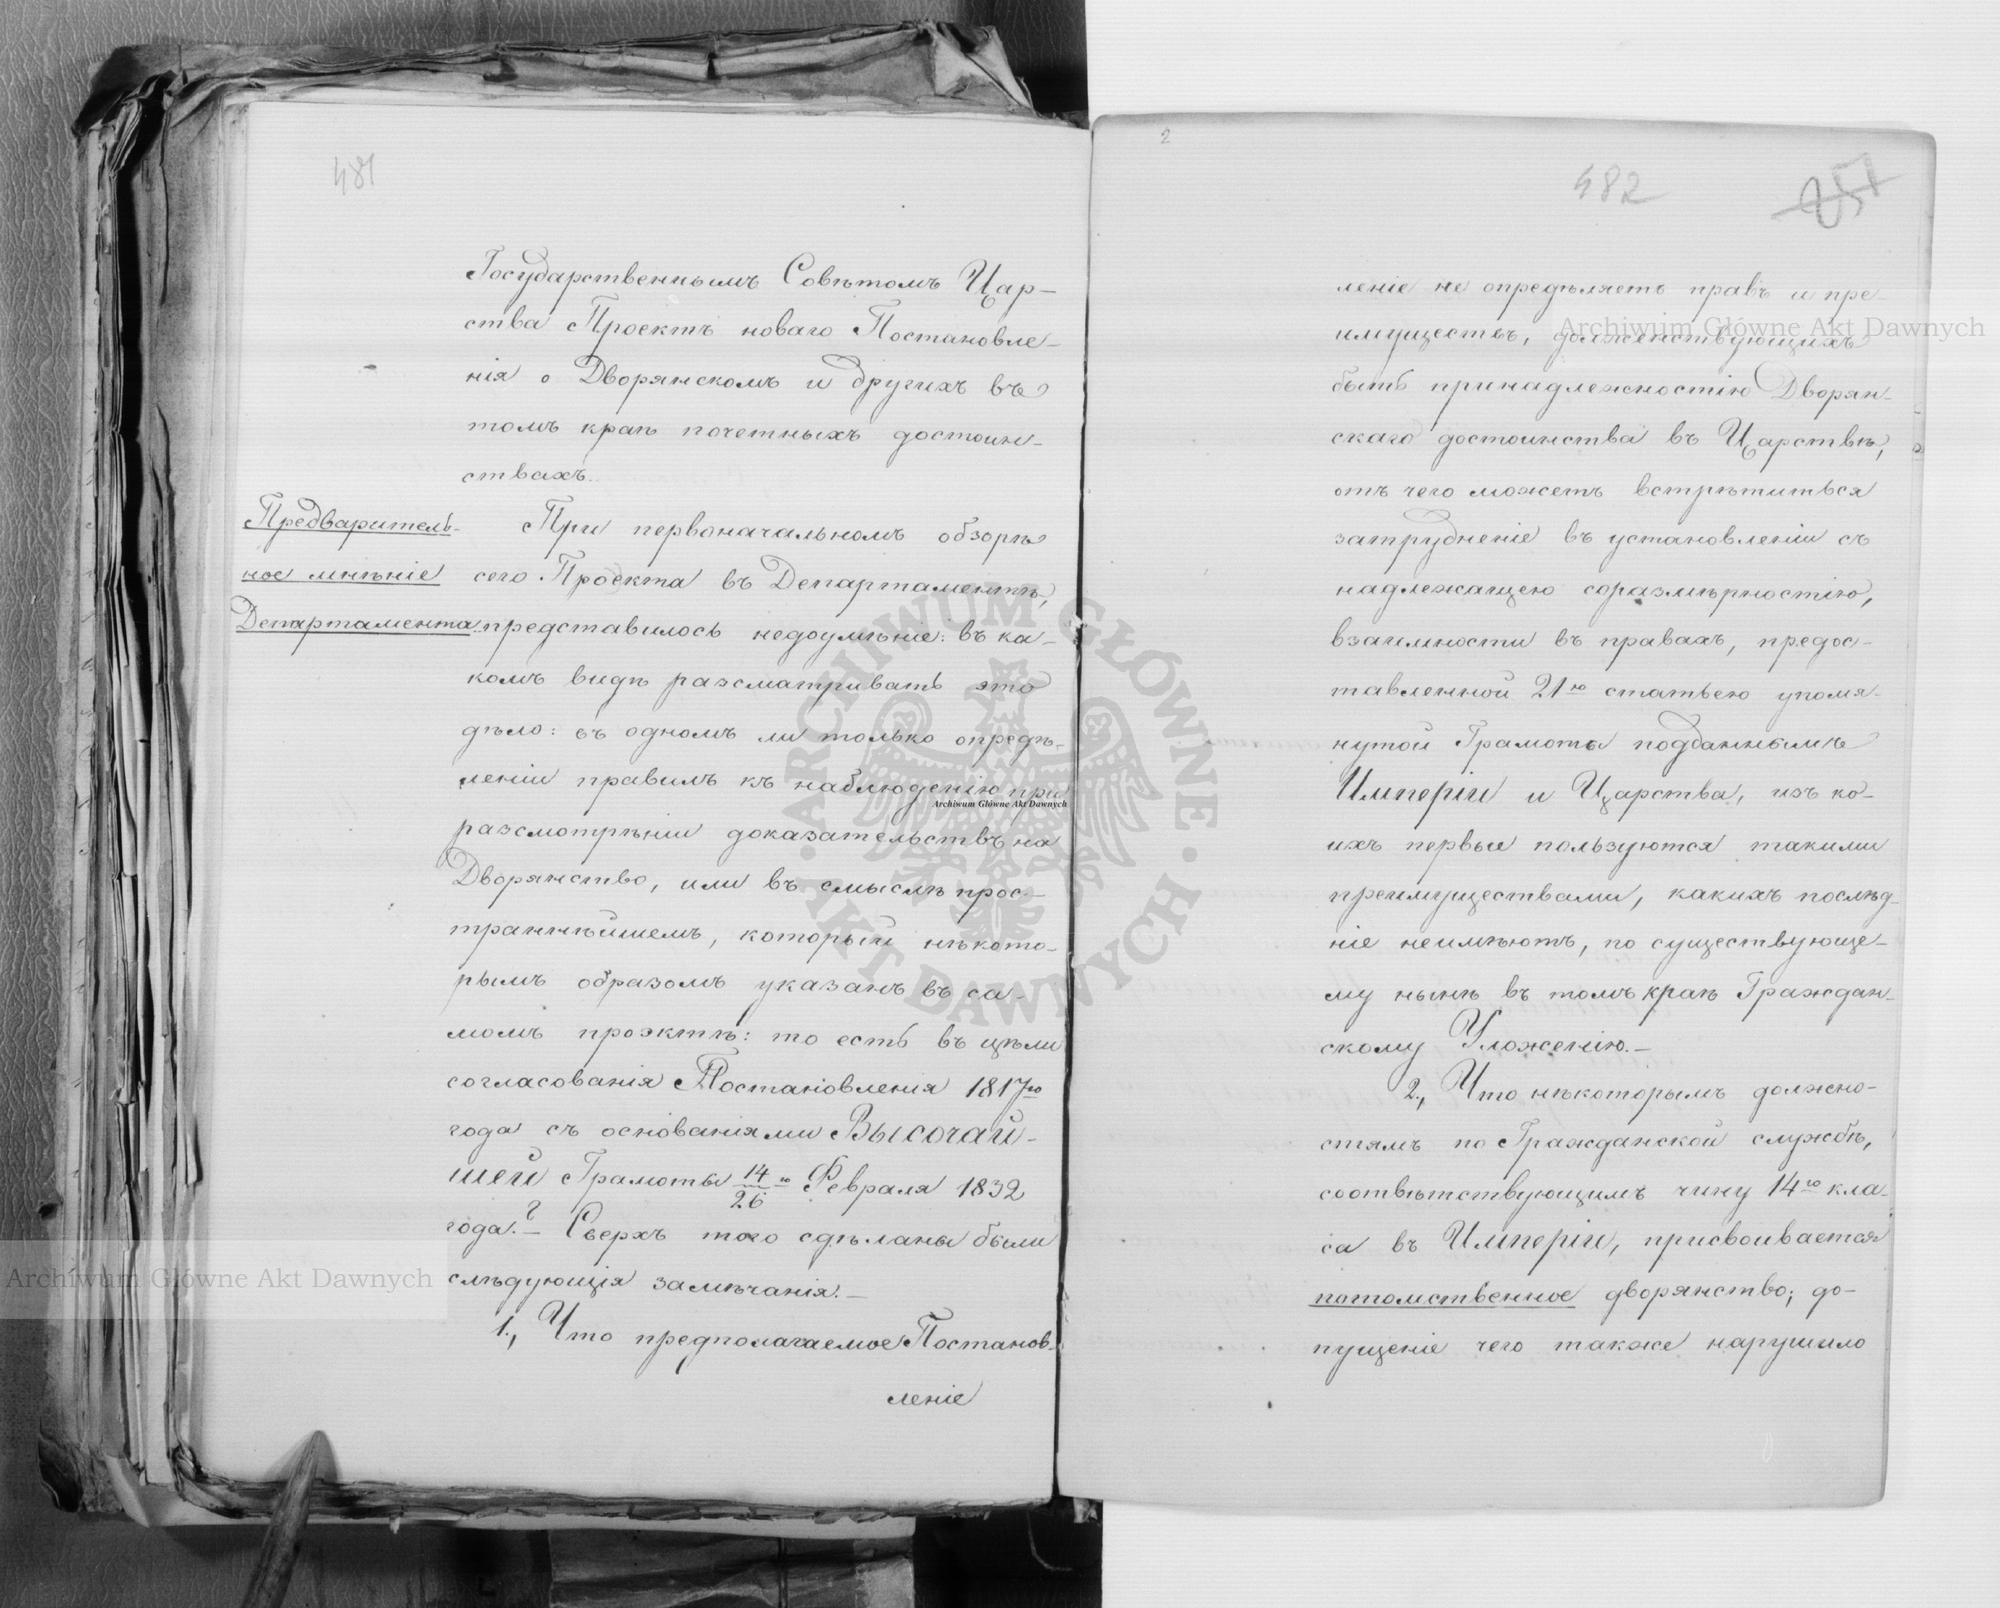 481
Государственнымъ Совѣтомъ Цар-
ства Проектъ новаго Постановле-
нія о Дворянскомъ и другихъ въ
томъ краѣ почетныхъ достоин-
ствахъ.
Предваритель-
ное мнѣніе
Департамента.
При первоначальномъ обзорѣ
сего Проекта въ Департаментѣ,
представилось недоумѣніе: въ ка-
комъ видѣ разсматривать это
дѣло: въ одномъ ли только опредѣ-
леніи правилъ къ наблюденію при
разсмотрѣніи доказательствъ на
Дворянство, или въ смыслѣ прос-
траннѣйшемъ, который нѣкото-
рымъ образомъ указанъ въ са-
момъ проэктѣ: то есть въ цѣли
согласованія Постановленія 1817го
года съ основаніями Высочай-
шей Грамоты 14/26го Февраля 1832
года?- Сверхъ того сдѣланы были
слѣдующія замѣчанія.-
1., Что предполагаемое Постанов-
леніе
2
482
251
леніе не опредѣляетъ правъ и пре-
имуществъ, долженствующихъ
быть принадлежностію Дворян-
скаго достоинства въ Царствѣ,
отъ чего можетъ встрѣтиться
затрудненіе въ установленіи съ
надлежащею соразмѣрностію,
взаимности въ правахъ, предос-
тавленной 21ю статьею упомя-
нутой Грамоты подданнымъ
Имперіи и Царства, изъ ко-
ихъ первые пользуются такими
преимуществами, какихъ послѣд-
ніе неимѣютъ, по существующе-
му нынѣ въ томъ краѣ Граждан-
скому Уложенію.-
2., Что нѣкоторымъ должно-
стямъ по Гражданской службѣ,
соотвѣтствующимъ чину 14го кла-
са въ Имперіи, присвоивается
потомственное дворянство; до-
пущеніе чего также нарушило
Archiwum Główne Akt Dawnych
Archiwum Główne Akt Dawnych
Archiwum Główne Akt Dawnych
ARCHIWUM GŁÓWNE · AKT DAWNYCH ·